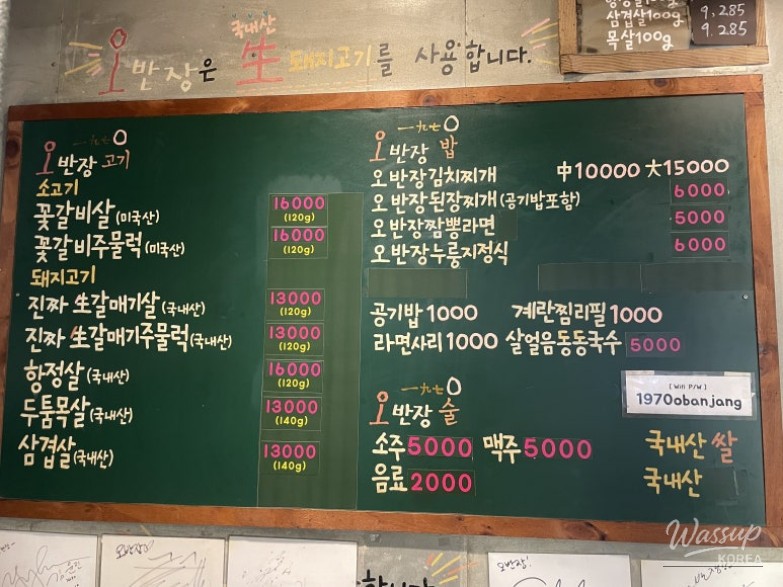 오반장은 국내산 生 돼지고기를 사용합니다.
삼겹살100g 9,285
목살100g 9.285
一九七O
오반장 고기
소고기
꽃갈비살(미국산) 16000 (120g)
꽃갈비주물럭(미국산) 16000 (120g)
돼지고기
진짜 生갈매기살(국내산) 13000 (120g)
진짜 生갈매기주물럭(국내산) 13000 (120g)
항정살(국내산) 16000 (120g)
두툼목살(국내산) 13000 (140g)
삼겹살(국내산) 13000 (140g)
一九七O
오반장 밥
오반장김치찌개 中10000 大15000
오반장된장찌개(공기밥포함) 6000
오반장짬뽕라면 5000
오반장누룽지정식 6000
공기밥1000 계란찜리필1000
라면사리1000 살얼음동동국수 5000
[Wifi P/W]
1970obanjang
一九七O
오반장 술
소주5000 맥주5000
음료2000
국내산 쌀
국내산
Wassup
KOREA